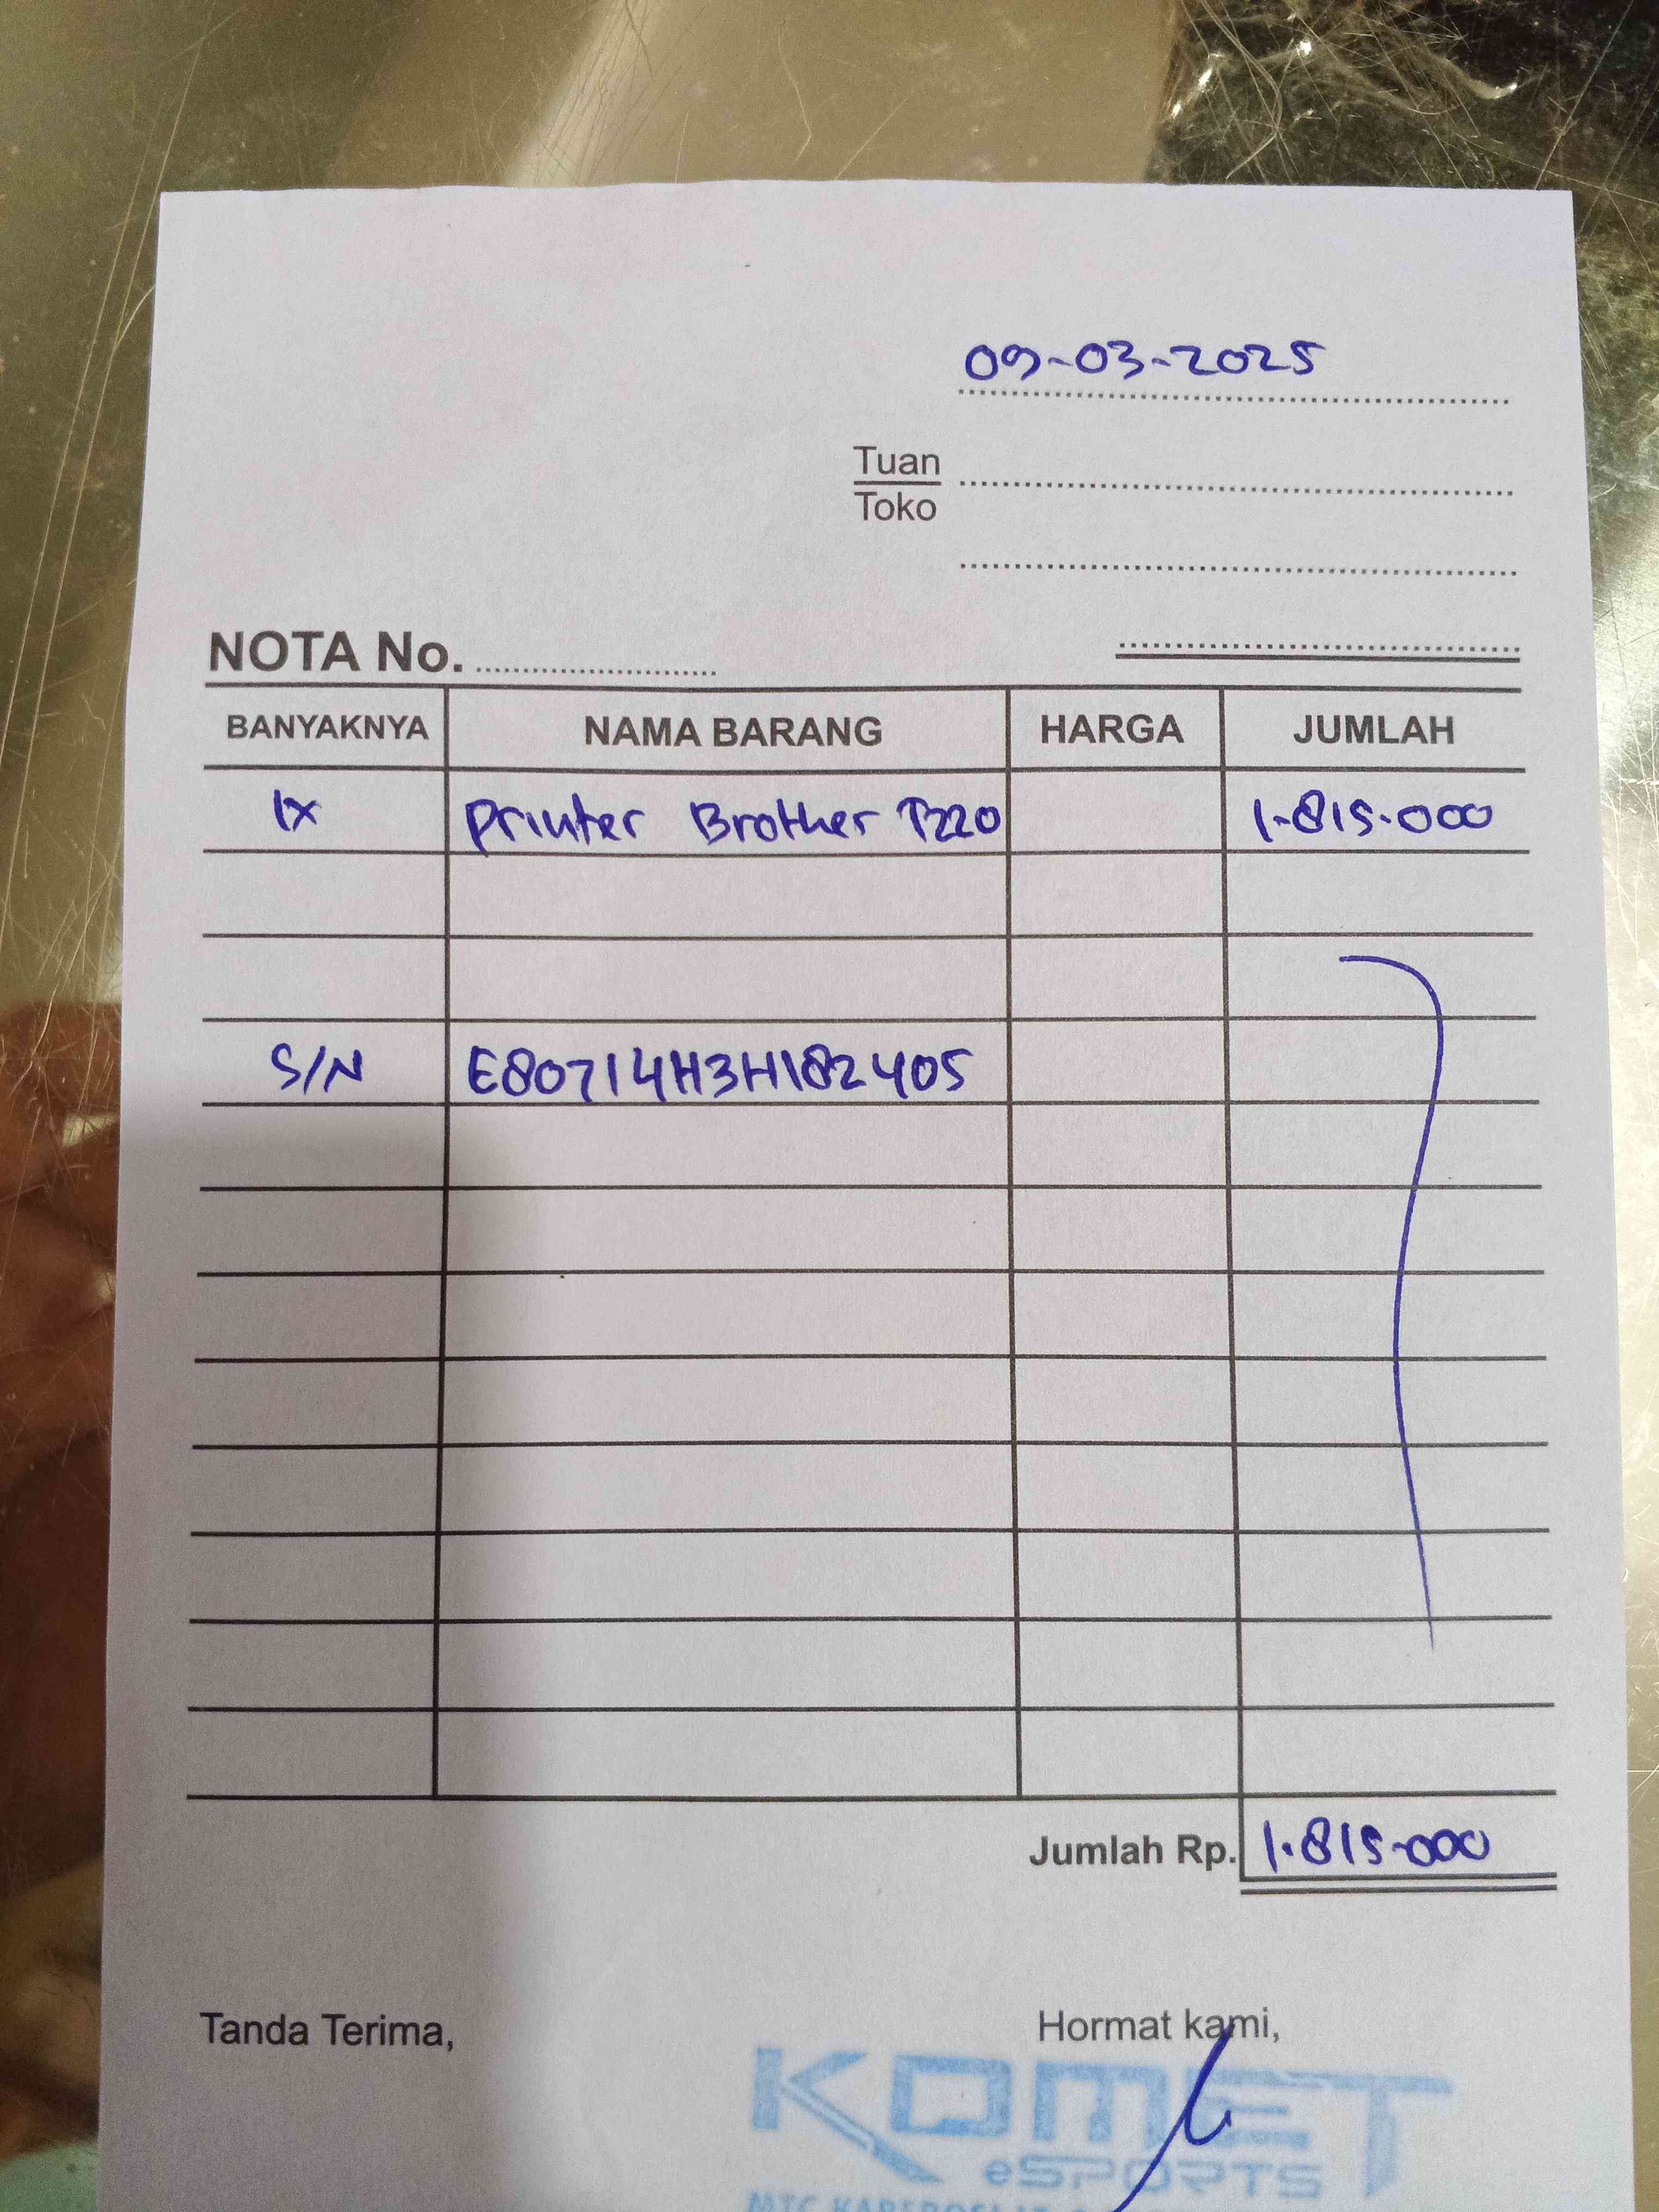 09-03-2025
Tuan
Toko
NOTA No.
BANYAKNYA NAMA BARANG HARGA JUMLAH
1x Printer Brother T220 1.815.000
S/N E80714H3H182405
Jumlah Rp. 1.815.000
Tanda Terima, Hormat kami,
KOMET
eSPORTS
MTC KAREBOSI